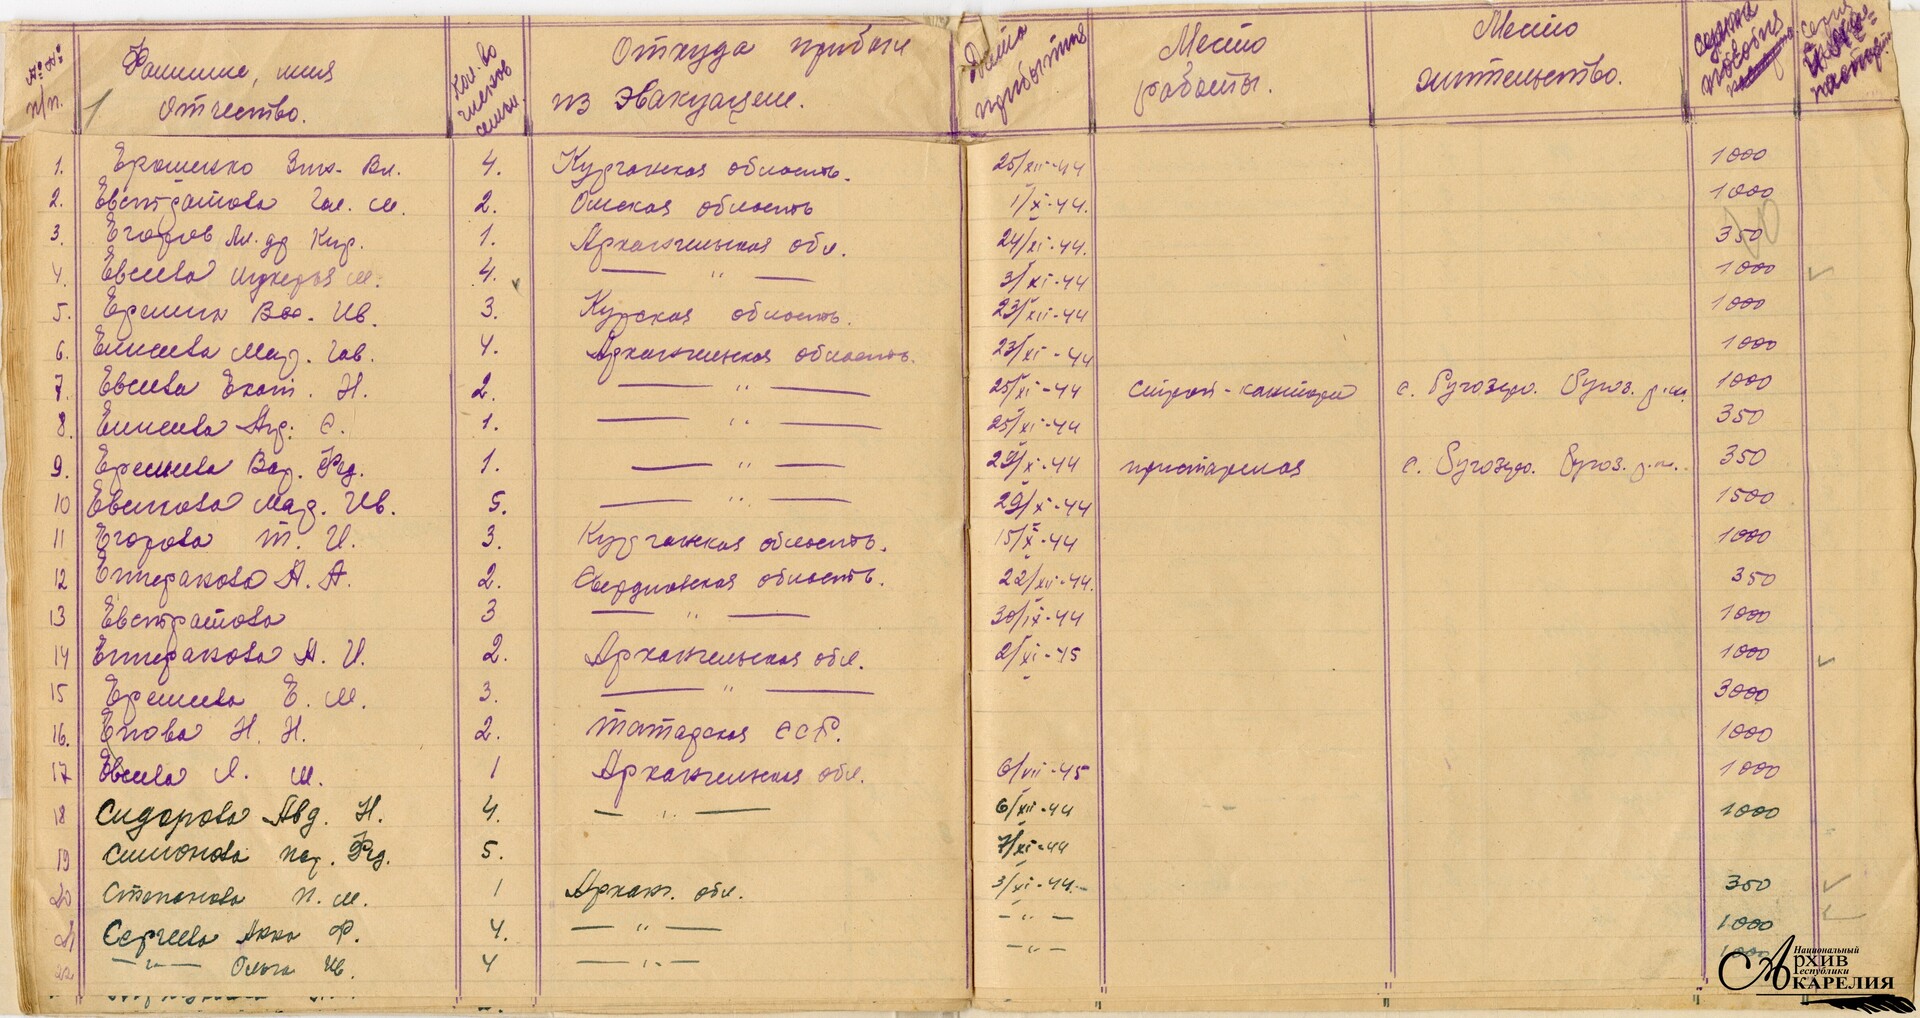 № №
п/п.
Фамилие, имя
Отчество.
Кол. во
членов
семьи.
Откуда прибыл
из эвакуации.
Дата
прибытия
Место
работы.
Место
жительство.
сумма
пособия
1. Ерошенко Зин. Вл. 4. Курганская область. 25/XII-44 1000
2. Евстратова Гал. М. 2. Омская область 1/X-44. 1000
3. Егоров Ал.др Кир. 1. Архангельская обл. 24/XI-44. 350
4. Евсеева М. 4. — " — 3/XI-44 1000
5. Еремин Вас. Ив. 3. Курская область. 23/XII-44 1000
6. Елисеева Мар. Гав. 4. Архангельская область. 23/XI-44 1000
7. Евсеева Екат. Н. 2. — " — 25/XI-44 строй-контора с. Ругозеро. Ругоз. р-н. 1000
8. Елисеева Аг. С. 1. — " — 25/XI-44 350
9. Еремеева Вар. Фед. 1. — " — 29/X-44 престарелая с. Ругозеро. Ругоз. р-н. 350
10 Евсикова Мар. Ив. 5. — " — 29/X-44 1500
11 Егорова Т. И. 3. Курганская область. 15/X-44 1000
12 Епифанова А. А. 2. Свердловская область. 22/XII-44. 350
13 Евстратова 3 — " — 30/IX-44 1000
14 А. И. 2. Архангельская обл. 2/XI-45 1000
15 Еремеева Е. М. 3. — " — 3000
16. Н. Н. 2. Татарская ССР. 1000
17 Евсеева Л. М. 1 Архангельская обл. 6/VII-45 1000
18 Сидорова Авд. Н. 4. — " — 6/XII-44 1000
19 Симонова Фед. 5. 7/XI-44
20 Степанова П. М. 1 Архан. обл. 3/XI-44. 350
21 Сергеева Анна Ф. 4. — " — — " — 1000
22 — " — Ольга Ив. 4 — " — — " — 1000
Национальный
Архив
Республики
Карелия